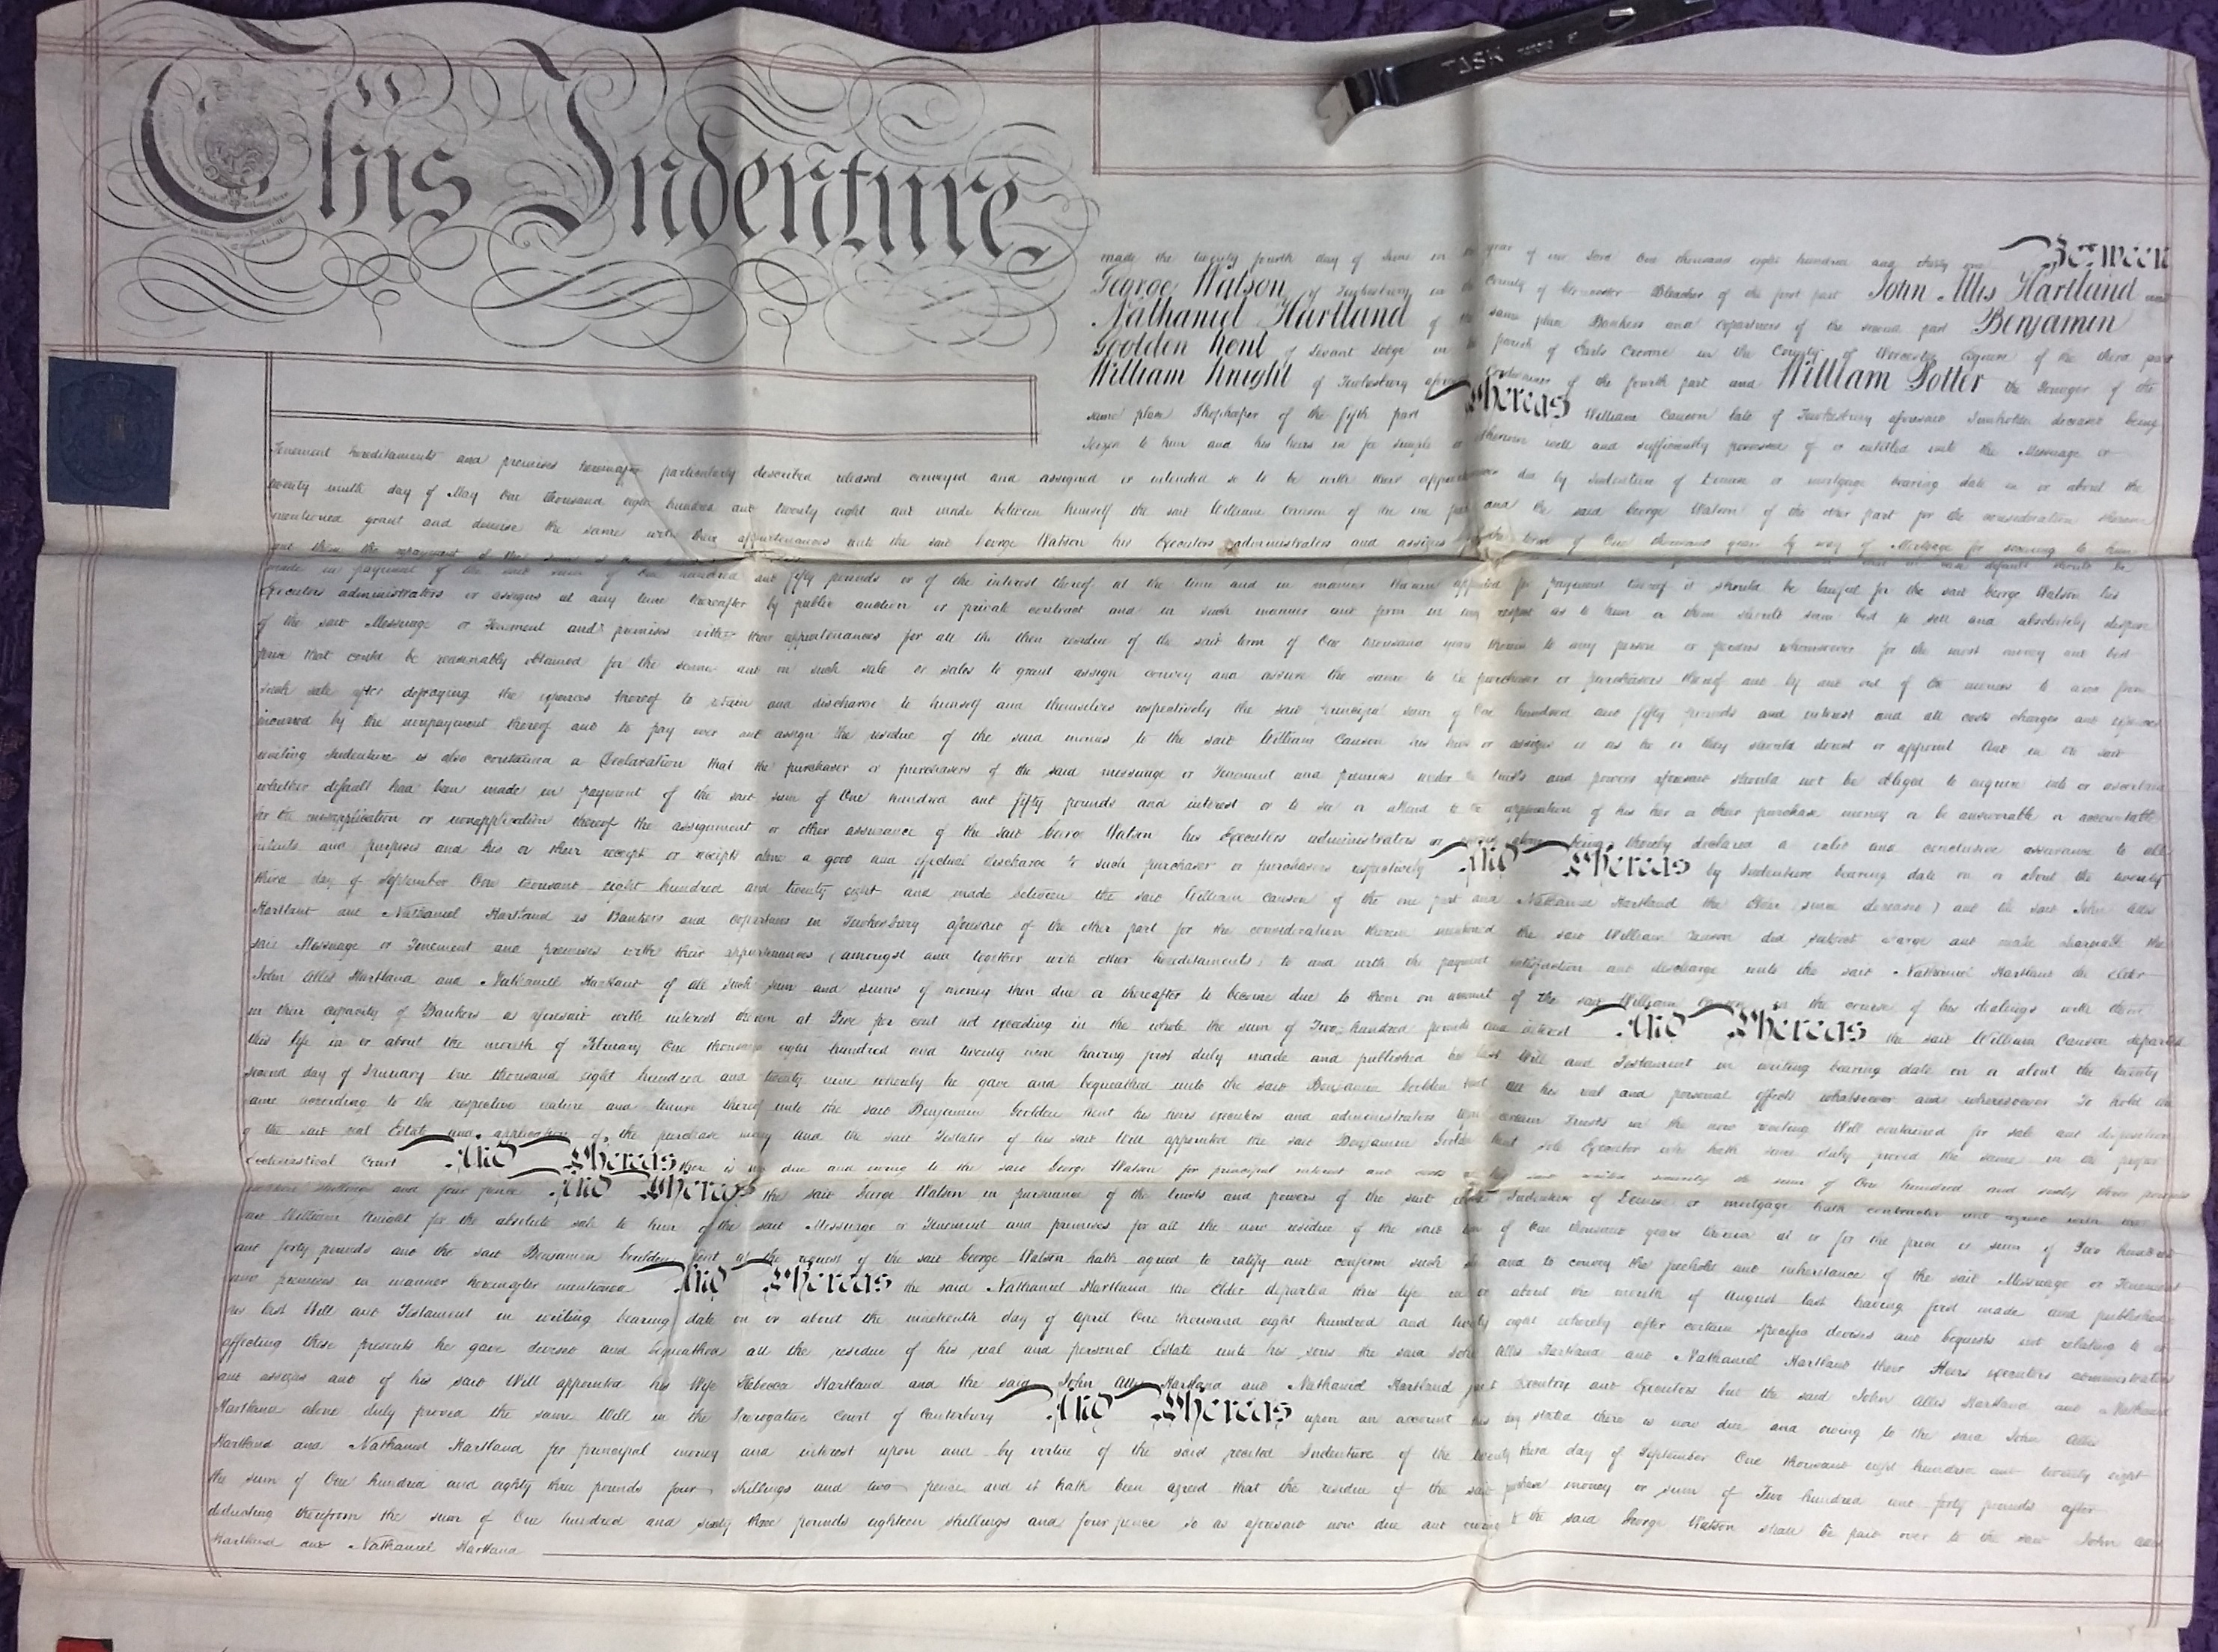 This Indenture
TASK
made the twenty fourth day of June in the year of our Lord One thousand eight hundred and thirty one Between
George Watson of Tewkesbury in the County of Gloucester of the first part John Allis Hartland and
Nathaniel Hartland of the same place Bankers and Copartners of the second part Benjamin
Goolden Kent of Levant Lodge in the parish of Earls Croome in the County of Worcester Esquire of the third part
William Knight of Tewkesbury aforesaid of the fourth part and William Potter the Younger of the
same place Shopkeeper of the fifth part Whereas William Causon late of Tewkesbury aforesaid Innholder deceased being
seized to him and his heirs in fee simple or otherwise well and sufficiently possessed of or entitled unto the Messuage or
Tenement hereditaments and premises hereinafter particularly described released conveyed and assigned or intended so to be with their appurtenances did by Indenture of Demise or mortgage bearing date on or about the
twenty ninth day of May One thousand eight hundred and twenty eight and made between himself the said William Causon of the one part and the said George Watson of the other part for the consideration therein
mentioned grant and demise the same with their appurtenances unto the said George Watson his Executors administrators and assigns for the term of One thousand years by way of Mortgage for securing to him
and them the repayment of the sum of
made in payment of the said sum of One hundred and fifty pounds or of the interest thereof at the time and in manner therein appointed for payment thereof it should be lawful for the said George Watson his
Executors administrators or assigns at any time thereafter by public auction or private contract and in such manner and form in any respect as to him or them should seem best to sell and absolutely dispose
of the said Messuage or Tenement and premises with their appurtenances for all the then residue of the said term of One thousand years therein to any person or persons whomsoever for the most money and best
price that could be reasonably obtained for the same and on such sale or sales to grant assign convey and assure the same to the purchaser or purchasers thereof and by and out of the monies to arise from
such sale after defraying the expences thereof to retain and discharge to himself and themselves respectively the said principal sum of One hundred and fifty pounds and interest and all costs charges and expences
incurred by the nonpayment thereof and to pay over and assign the residue of the said monies to the said William Causon his heirs or assigns or as he or they should direct or appoint And in the said
reciting Indenture is also contained a Declaration that the purchaser or purchasers of the said messuage or Tenement and premises under the trusts and powers aforesaid should not be obliged to enquire into or ascertain
whether default had been made in payment of the said sum of One hundred and fifty pounds and interest or to see or attend to the application of his her or their purchase money or be answerable or accountable
for the misapplication or nonapplication thereof the assignment or other assurance of the said George Watson his Executors administrators or assigns alone being thereby declared a valid and conclusive assurance to all
intents and purposes and his or their receipt or receipts alone a good and effectual discharge to such purchaser or purchasers respectively And Whereas by Indenture bearing date on or about the twenty
third day of September One thousand eight hundred and twenty eight and made between the said William Causon of the one part and Nathaniel Hartland the Elder (since deceased) and the said John Allis
Hartland and Nathaniel Hartland as Bankers and Copartners in Tewkesbury aforesaid of the other part for the consideration therein mentioned the said William Causon did subject charge and make chargeable the
said Messuage or Tenement and premises with their appurtenances (amongst and together with other hereditaments) to and with the payment satisfaction and discharge unto the said Nathaniel Hartland the Elder
John Allis Hartland and Nathaniel Hartland of all such sum and sums of money then due or thereafter to become due to them on account of the said William Causon in the course of his dealings with them
in their capacity of Bankers as aforesaid with interest thereon at Five per cent not exceeding in the whole the sum of Two hundred pounds and interest And Whereas the said William Causon departed
this life in or about the month of February One thousand eight hundred and twenty nine having first duly made and published his last Will and Testament in writing bearing date on or about the twenty
second day of January One thousand eight hundred and twenty nine whereby he gave and bequeathed unto the said Benjamin Goolden Kent all his real and personal effects whatsoever and wheresoever To hold the
same according to the respective nature and tenure thereof unto the said Benjamin Goolden Kent his heirs executors and administrators upon certain Trusts in the now reciting Will contained for sale and disposition
of the said real Estate and application of the purchase money And the said Testator of his said Will appointed the said Benjamin Goolden Kent sole Executor who hath since duly proved the same in the proper
Ecclesiastical Court And Whereas there is now due and owing to the said George Watson for principal interest and costs the sum of One hundred and sixty three pounds
eighteen shillings and four pence And Whereas the said George Watson in pursuance of the trusts and powers of the said Indenture of Demise or mortgage hath contracted and agreed with the
said William Knight for the absolute sale to him of the said Messuage or Tenement and premises for all the now residue of the said term of One thousand years therein at or for the price or sum of Two hundred
and forty pounds and the said Benjamin Goolden Kent at the request of the said George Watson hath agreed to ratify and confirm such sale and to convey the freehold and inheritance of the said Messuage or Tenement
and premises in manner hereinafter mentioned And Whereas the said Nathaniel Hartland the Elder departed this life in or about the month of August last having first made and published
his last Will and Testament in writing bearing date on or about the nineteenth day of April One thousand eight hundred and twenty eight whereby after certain specific devises and bequests not relating to or
affecting these presents he gave devised and bequeathed all the residue of his real and personal Estate unto his sons the said John Allis Hartland and Nathaniel Hartland their Heirs executors administrators
and assigns and of his said Will appointed his Wife Rebecca Hartland and the said John Allis Hartland and Nathaniel Hartland joint Executrix and Executors but the said John Allis Hartland and Nathaniel
Hartland alone duly proved the same Will in the Prerogative Court of Canterbury And Whereas upon an account this day stated there is now due and owing to the said John Allis
Hartland and Nathaniel Hartland for principal money and interest upon and by virtue of the said recited Indenture of the twenty third day of September One thousand eight hundred and twenty eight
the sum of One hundred and eighty three pounds four shillings and two pence and it hath been agreed that the residue of the said purchase money or sum of Two hundred and forty pounds after
deducting therefrom the sum of One hundred and sixty three pounds eighteen shillings and four pence so as aforesaid now due and owing to the said George Watson shall be paid over to the said John Allis
Hartland and Nathaniel Hartland